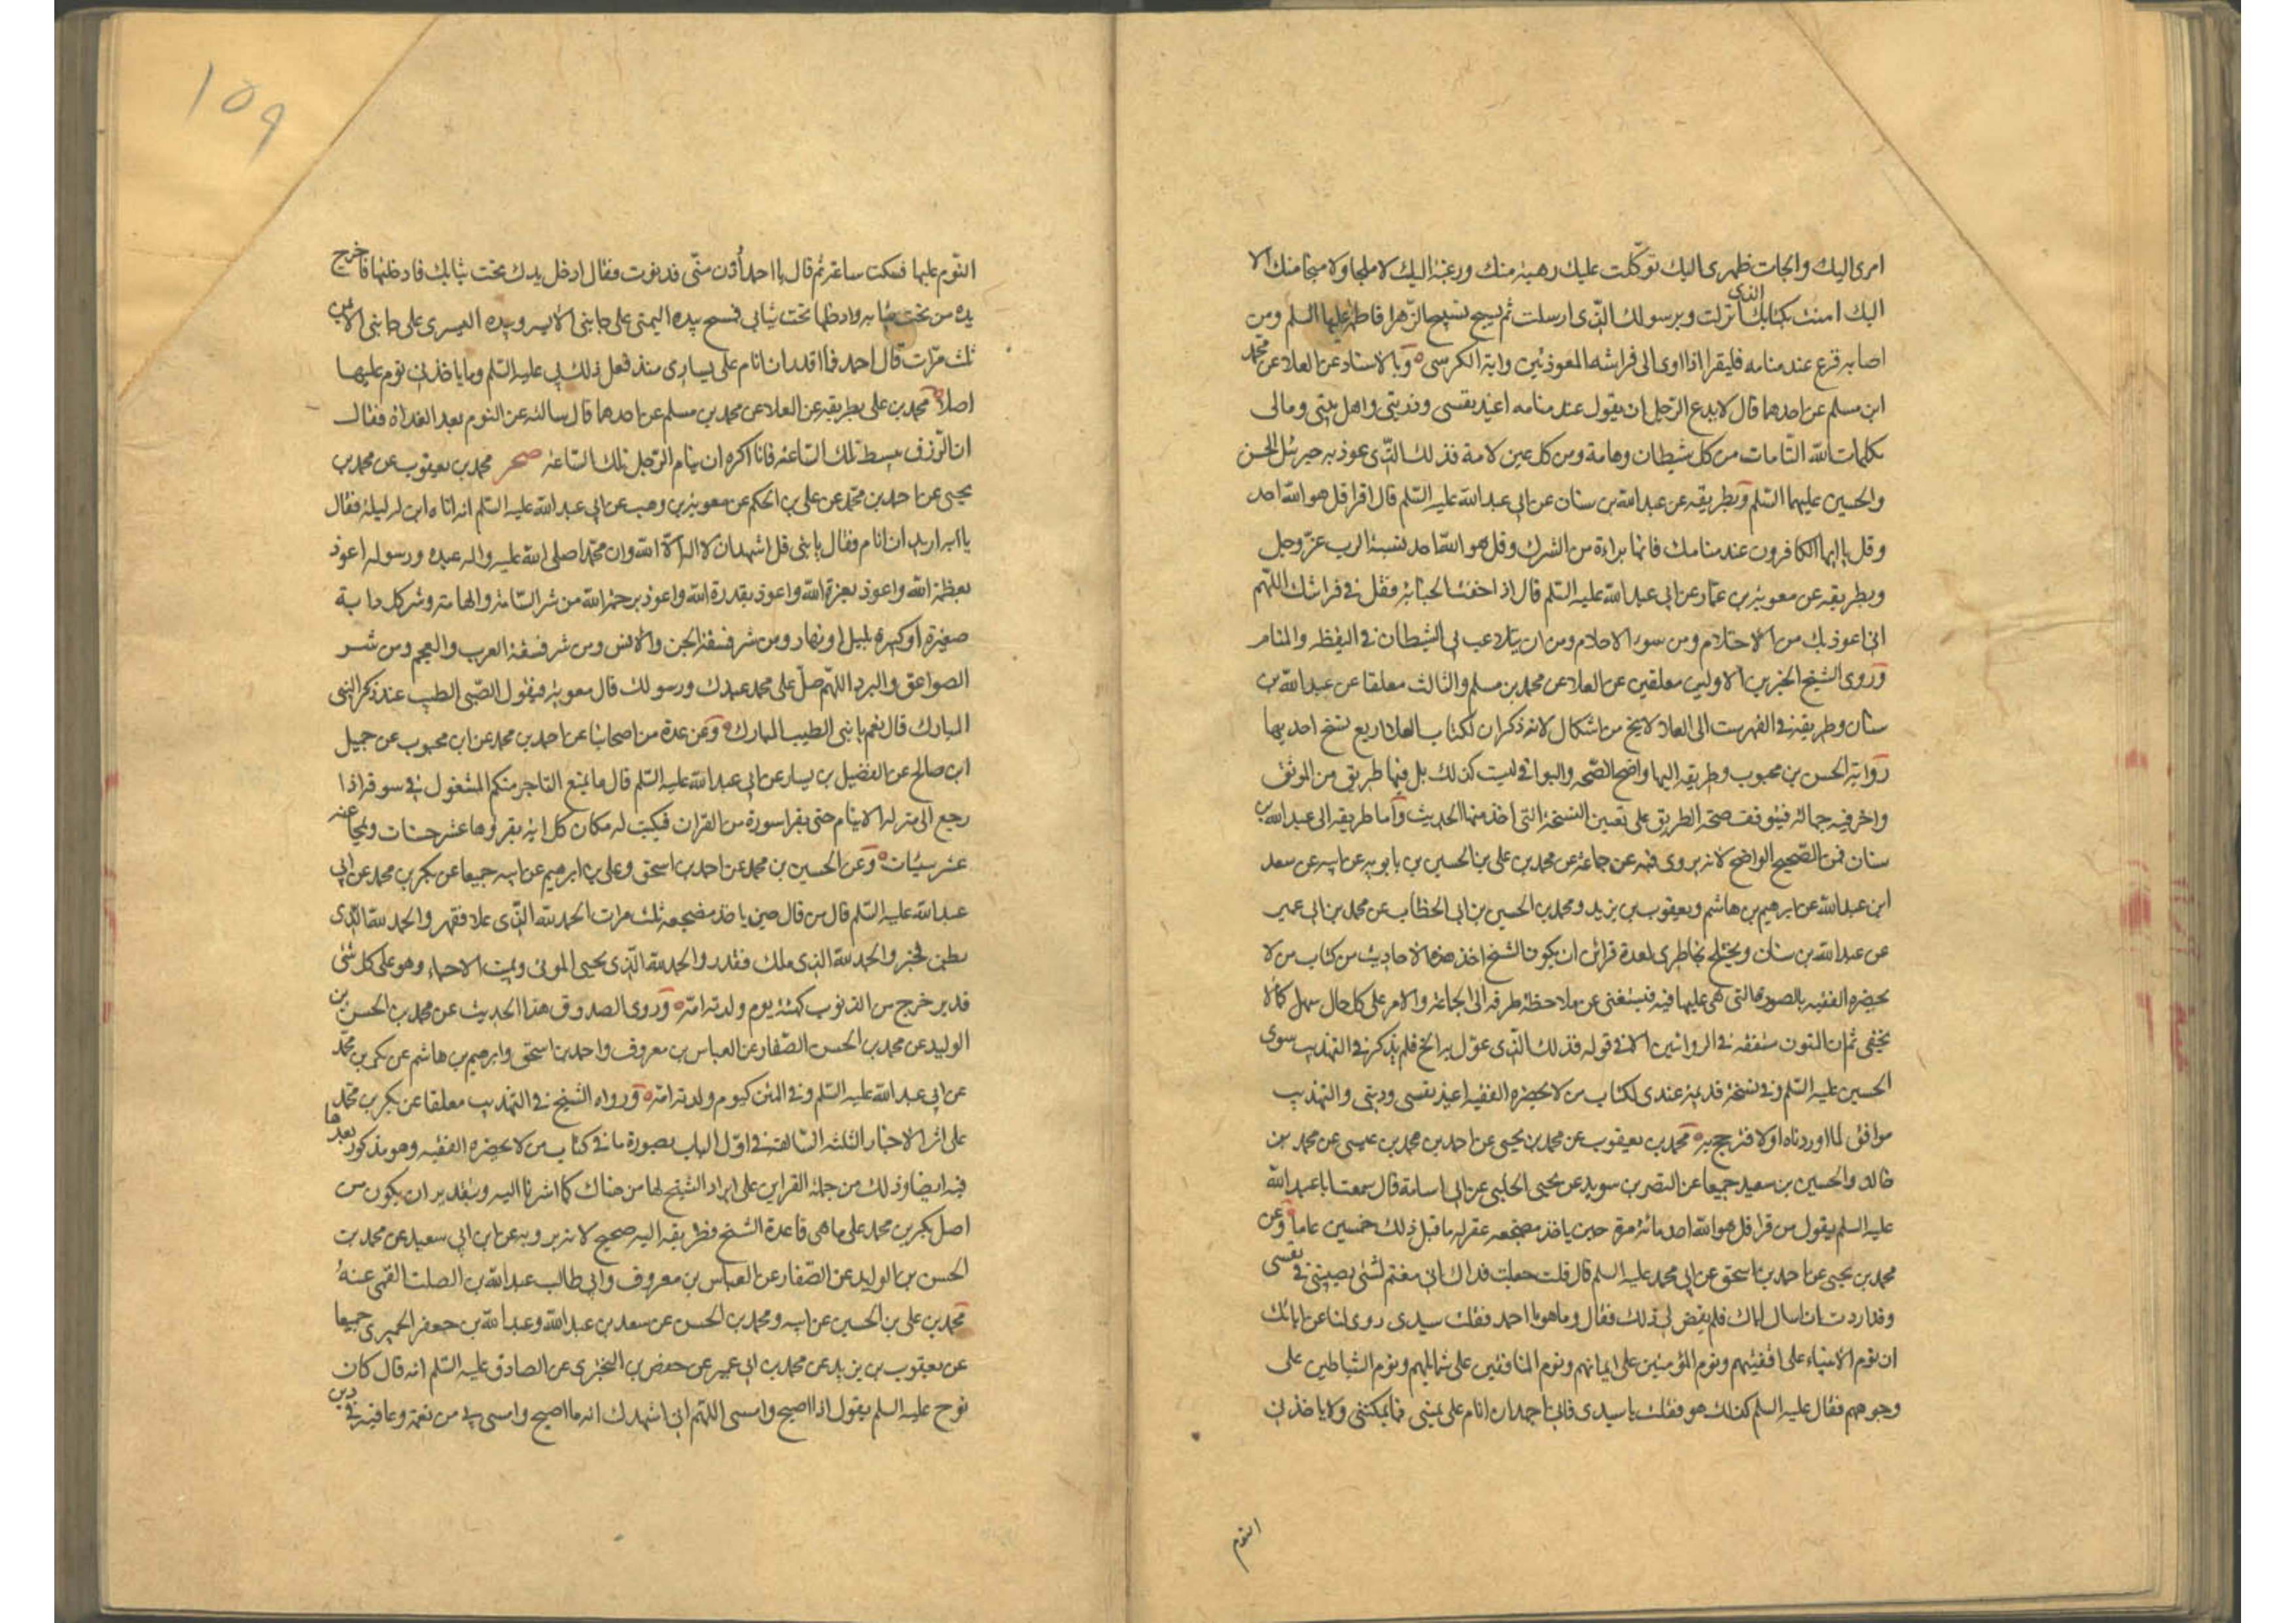 امرى اليك والجات ظهرى اليك توكّلت عليك رهبة منك ورغبة اليك لا ملجا ولا منجا منك الا
اليك امنت بكتابك الذى انزلت وبرسولك الّذى ارسلت ثم يسبح تسبيح الزّهرا فاطمة عليها السلم ومن
اصابه فزع عند منامه فليقرا اذا اوى الى فراشه المعوذتين واية الكرسى وبالاسناد عن العلا عن محمّد
ابن مسلم عن احدهما قال لا يدع الرّجل ان يقول عند منامه اعيذ نفسى وذريتى واهل بيتى ومالى
بكلمات الله التّامات من كل شيطان وهامة ومن كل عين لامة فذلك الّذى عوذ به جبرئيل الحسن
والحسين عليهما السّلم وبطريقه عن عبدالله بن سنان عن ابى عبدالله عليه السّلم قال اقرا قل هو الله احد
وقل يا ايها الكافرون عند منامك فانها براءة من الشرك وقل هو الله احد نسبة الرب عزّ وجل
وبطريقه عن معوية بن عمّار عن ابى عبدالله عليه السّلم قال اذا خفت الجنابة فقل فى فراشك اللّهم
انى اعوذ بك من الاحتلام ومن سوء الاحلام ومن ان يتلاعب بى الشيطان فى اليقظة والمنام
وروى الشيخ الخبرين الاولين معلقين عن العلا عن محمد بن مسلم والثالث معلقا عن عبدالله بن
سنان وطريقه فى الفهرست الى العلا لا يخ من اشكال لانه ذكر ان لكتاب العلا اربع نسخ احديها
رواية الحسن بن محبوب وطريقه اليها واضح الصّحه والبواقى ليست كذلك بل فيها طريق من الموثق
واخر فيه جهالة فيتوقف صحة الطريق على تعيين النسخة التى اخذ منها الحديث واما طريقه الى عبدالله بن
سنان فمن الصّحيح الواضح لانه يروى فيه عن جماعة عن محمد بن على بن الحسين بن بابويه عن ابيه عن سعد
ابن عبدالله عن ابرهيم بن هاشم ويعقوب بن يزيد ومحمد بن الحسين بن ابى الخطاب عن محمد بن ابى عمير
عن عبدالله بن سنان ويختلج بخاطرى لعدة قرائن ان يكون الشيخ اخذ هذه الاحاديث من كتاب من لا
يحضره الفقيه بالصورة التى هى عليها فيه فيستغنى عن ملاحظة طرقه الى الجماعة والامر على كل حال سهل كما لا
يخفى ثم ان المتون متفقة فى الروايتين الا فى قوله فذلك الّذى عوّل به الخ فلم يذكر فى التهذيب سوى
الحسين عليه السّلم وفى نسخة قديمة عندى لكتاب من لا يحضره الفقيه اعيذ نفسى ودينى والتهذيب
موافق لما اوردناه اولا فترجح به محمد بن يعقوب عن محمد بن يحيى عن احمد بن محمد بن عيسى عن محمد بن
خالد والحسين بن سعيد جميعا عن النضر بن سويد عن يحيى الحلبى عن ابى اسامة قال سمعت ابا عبدالله
عليه السلم يقول من قرا قل هو الله احد مائة مرة حين ياخذ مضجعه غفر له ما قبل ذلك خمسين عاما وعن
محمد بن يحيى عن احمد بن اسحق عن ابى محمد عليه السلم قال قلت جعلت فداك انى مغتم لشئ يصيبنى فى نفسى
وقد اردت ان اسال اباك فلم يقض لى ذلك فقال وما هو يا احمد فقلت سيدى روى لنا عن ابائك
ان نوم الانبياء على اقفيتهم ونوم المؤمنين على ايمانهم ونوم المنافقين على شمايلهم ونوم الشياطين على
وجوههم فقال عليه السلم كذلك هو فقلت يا سيدى فانى اجهد ان انام على يمينى فما يمكننى ولا ياخذنى
النوم
١٥٩
النّوم عليها فسكت ساعة ثم قال يا احمد اُدن منّى فدنوت فقال ادخل يدك تحت ثيابك فادخلتها فاخرج
يده من تحت ثيابه وادخلها تحت ثيابى فمسح بيده اليمنى على جانبى الايسر وبيده اليسرى على جانبى الايمن
ثلث مرّات قال احمد فما اقدر ان انام على يسارى منذ فعل ذلك بى عليه السّلم وما ياخذنى نوم عليها
اصلا محمد بن على بطريقه عن العلا عن محمد بن مسلم عن احدهما قال سالته عن النوم بعد الغداة فقال
ان الرّزق يبسط تلك السّاعة فانا اكره ان ينام الرّجل تلك السّاعة صحر محمد بن يعقوب عن محمد بن
يحيى عن احمد بن محمّد عن على بن الحكم عن معوية بن وهب عن ابى عبدالله عليه السّلم انه اتاه ابن له ليلة فقال
يا ابه اريد ان انام فقال يا بنى قل اشهد ان لا اله الّا الله وان محمّدا صلى الله عليه واله عبده ورسوله اعوذ
بعظمة الله واعوذ بعزة الله واعوذ بقدرة الله واعوذ برحمة الله من شر السّامة والهامة وشر كل دابة
صغيرة او كبيرة بليل او نهار ومن شر فسقة الجن والانس ومن شر فسقة العرب والعجم ومن شر
الصواعق والبرد اللّهم صلّ على محمد عبدك ورسولك قال معوية فيقول الصّبى الطيب عند ذكر النبى
المبارك قال نعم يا بنى الطيب المبارك وعن عدة من اصحابنا عن احمد بن محمد عن ابن محبوب عن جميل
ابن صالح عن الفضيل بن يسار عن ابى عبدالله عليه السّلم قال ما يمنع التاجر منكم المشغول فى سوقه اذا
رجع الى منزله الا ينام حتى يقرا سورة من القران فيكتب له مكان كل اية يقروها عشر حسنات ويمحا عنه
عشر سيئات وعن الحسين بن محمد عن احمد بن اسحق وعلى بن ابرهيم عن ابيه جميعا عن بكر بن محمد عن ابى
عبدالله عليه السّلم قال من قال حين ياخذ مضجعه ثلث مرات الحمد لله الّذى علا فقهر والحمد لله الّذى
بطن فخبر والحمد لله الذى ملك فقدر والحمد لله الّذى يحيى الموتى ويميت الاحياء وهو على كل شئ
قدير خرج من الذنوب كهيئة يوم ولدته امّه وروى الصدوق هذا الحديث عن محمد بن الحسن بن
الوليد عن محمد بن الحسن الصّفار عن العباس بن معروف واحمد بن اسحق وابرهيم بن هاشم عن بكر بن محمّد
عن ابى عبدالله عليه السّلم وفى المتن كيوم ولدته امّه ورواه الشيخ فى التهذيب معلقا عن بكر بن محمّد
على اثر الاخبار الثلثة السّالفة فى اوّل الباب بصورة ما فى كتاب من لا يحضره الفقيه وهو مذكور بعدها
فيه ايضا وذلك من جملة القراين على ايراد الشيخ لها من هناك كما اشرنا اليه وبتقدير ان يكون من
اصل بكر بن محمد على ما هى قاعدة الشيخ فطريقه اليه صحيح لانه يرويه عن ابن ابى سعيد عن محمد بن
الحسن بن الوليد عن الصّفار عن العباس بن معروف وابى طالب عبدالله بن الصلت القمى عنه
محمد بن على بن الحسين عن ابيه ومحمد بن الحسن عن سعد بن عبدالله وعبدالله بن جعفر الحميرى جميعا
عن يعقوب بن يزيد عن محمد بن ابى عمير عن حفص بن البخترى عن الصادق عليه السّلم انه قال كان
نوح عليه السلم يقول اذا اصبح وامسى اللّهم انى اشهدك انه ما اصبح وامسى بى من نعمة وعافية فى دين